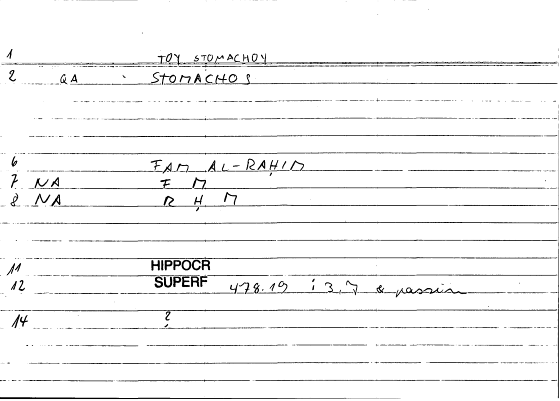 1 TOY STOMACHOY
2 QA STOMACHOS
6 FAM AL-RAḤIM
7 NA F M
8 NA R Ḥ M
11 HIPPOCR
12 SUPERF 478.19 ; 3.7 & passim
14 ?